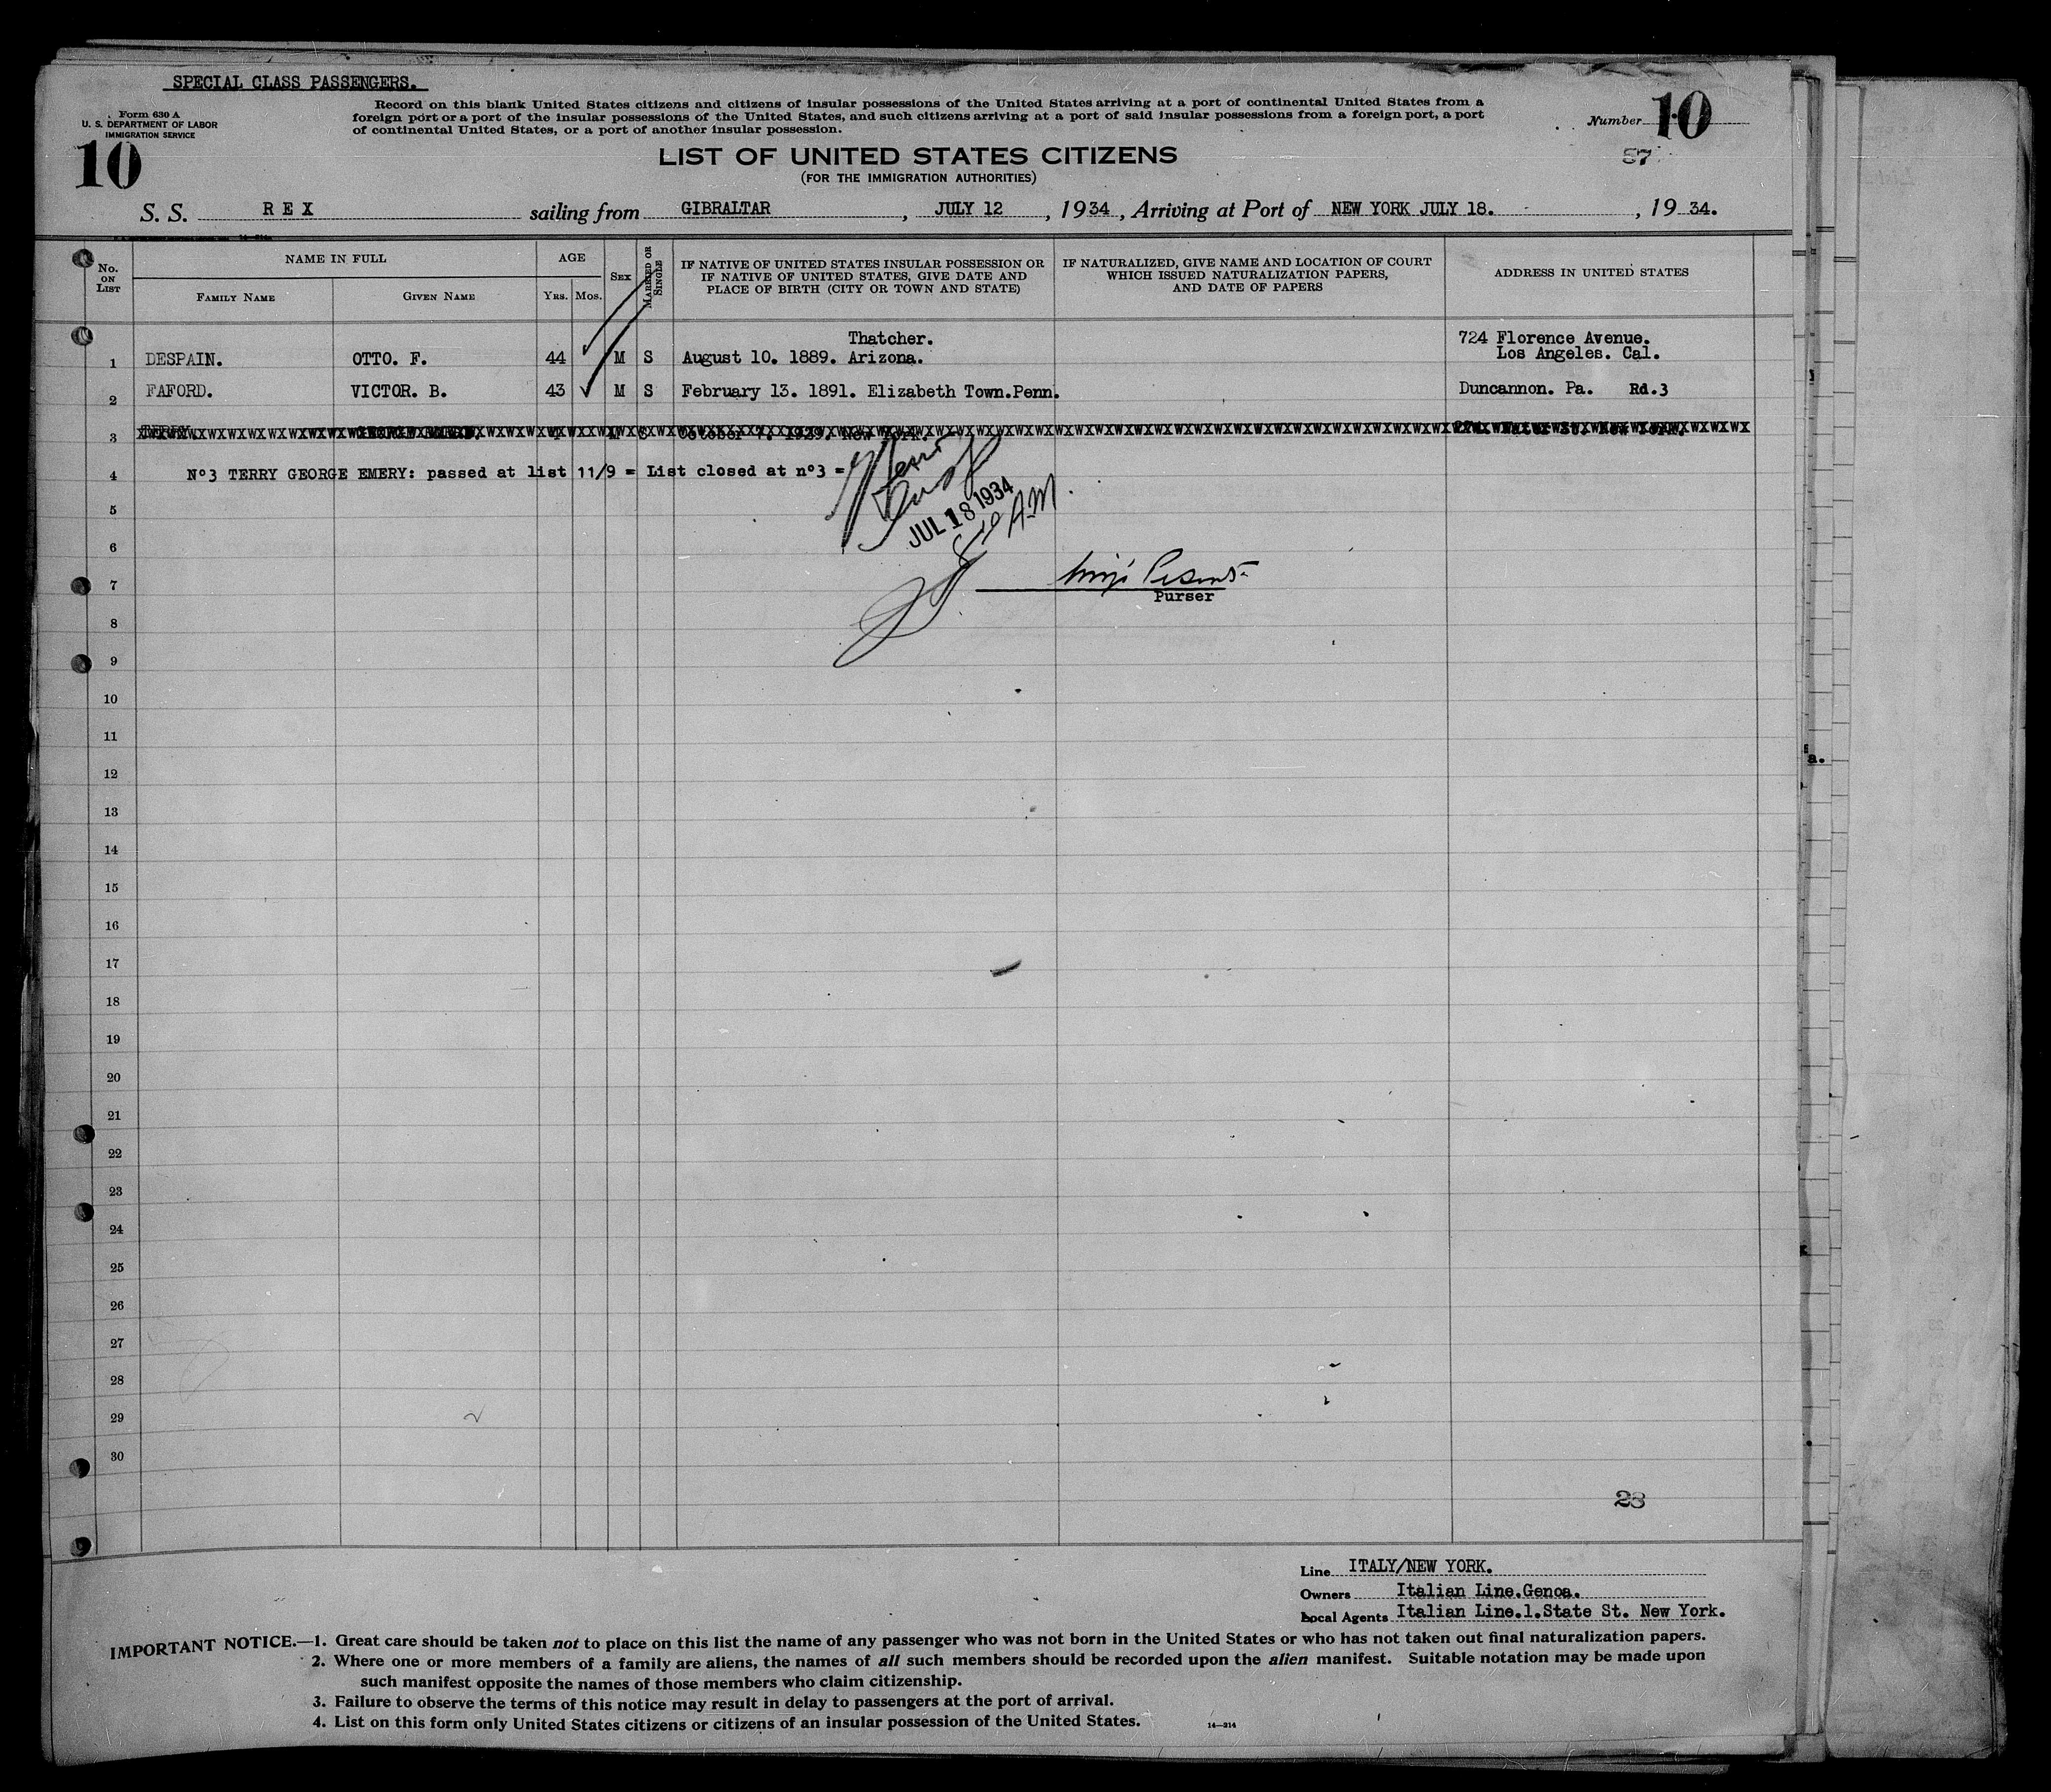 SPECIAL CLASS PASSENGERS.
Form 630 A
U. S. DEPARTMENT OF LABOR
IMMIGRATION SERVICE
10
Record on this blank United States citizens and citizens of insular possessions of the United States arriving at a port of continental United States from a
foreign port or a port of the insular possessions of the United States, and such citizens arriving at a port of said insular possessions from a foreign port, a port
of continental United States, or a port of another insular possession.
Number 10
57
LIST OF UNITED STATES CITIZENS
(FOR THE IMMIGRATION AUTHORITIES)
S. S. REX sailing from GIBRALTAR, JULY 12, 1934, Arriving at Port of NEW YORK JULY 18., 19 34.
No. ON LIST
NAME IN FULL
FAMILY NAME
GIVEN NAME
AGE
YRS. MOS.
SEX
MARRIED OR SINGLE
IF NATIVE OF UNITED STATES INSULAR POSSESSION OR
IF NATIVE OF UNITED STATES, GIVE DATE AND
PLACE OF BIRTH (CITY OR TOWN AND STATE)
IF NATURALIZED, GIVE NAME AND LOCATION OF COURT
WHICH ISSUED NATURALIZATION PAPERS,
AND DATE OF PAPERS
ADDRESS IN UNITED STATES
Thatcher. 724 Florence Avenue.
1 DESPAIN. OTTO. F. 44 M S August 10. 1889. Arizona. Los Angeles. Cal.
2 FAFORD. VICTOR. B. 43 M S February 13. 1891. Elizabeth Town.Penn. Duncannon. Pa. Rd.3
3 TERRY October 7. 1929. New York.
4 Nº3 TERRY GEORGE EMERY: passed at list 11/9 = List closed at nº3 =
5
JUL 18 1934
AM
6
7
Purser
8
9
10
11
12
13
14
15
16
17
18
19
20
21
22
23
24
25
26
27
28
29
30
28
Line ITALY/NEW YORK.
Owners Italian Line.Genoa.
Local Agents Italian Line.1.State St. New York.
IMPORTANT NOTICE.—1. Great care should be taken not to place on this list the name of any passenger who was not born in the United States or who has not taken out final naturalization papers.
2. Where one or more members of a family are aliens, the names of all such members should be recorded upon the alien manifest. Suitable notation may be made upon
such manifest opposite the names of those members who claim citizenship.
3. Failure to observe the terms of this notice may result in delay to passengers at the port of arrival.
4. List on this form only United States citizens or citizens of an insular possession of the United States.
14—214